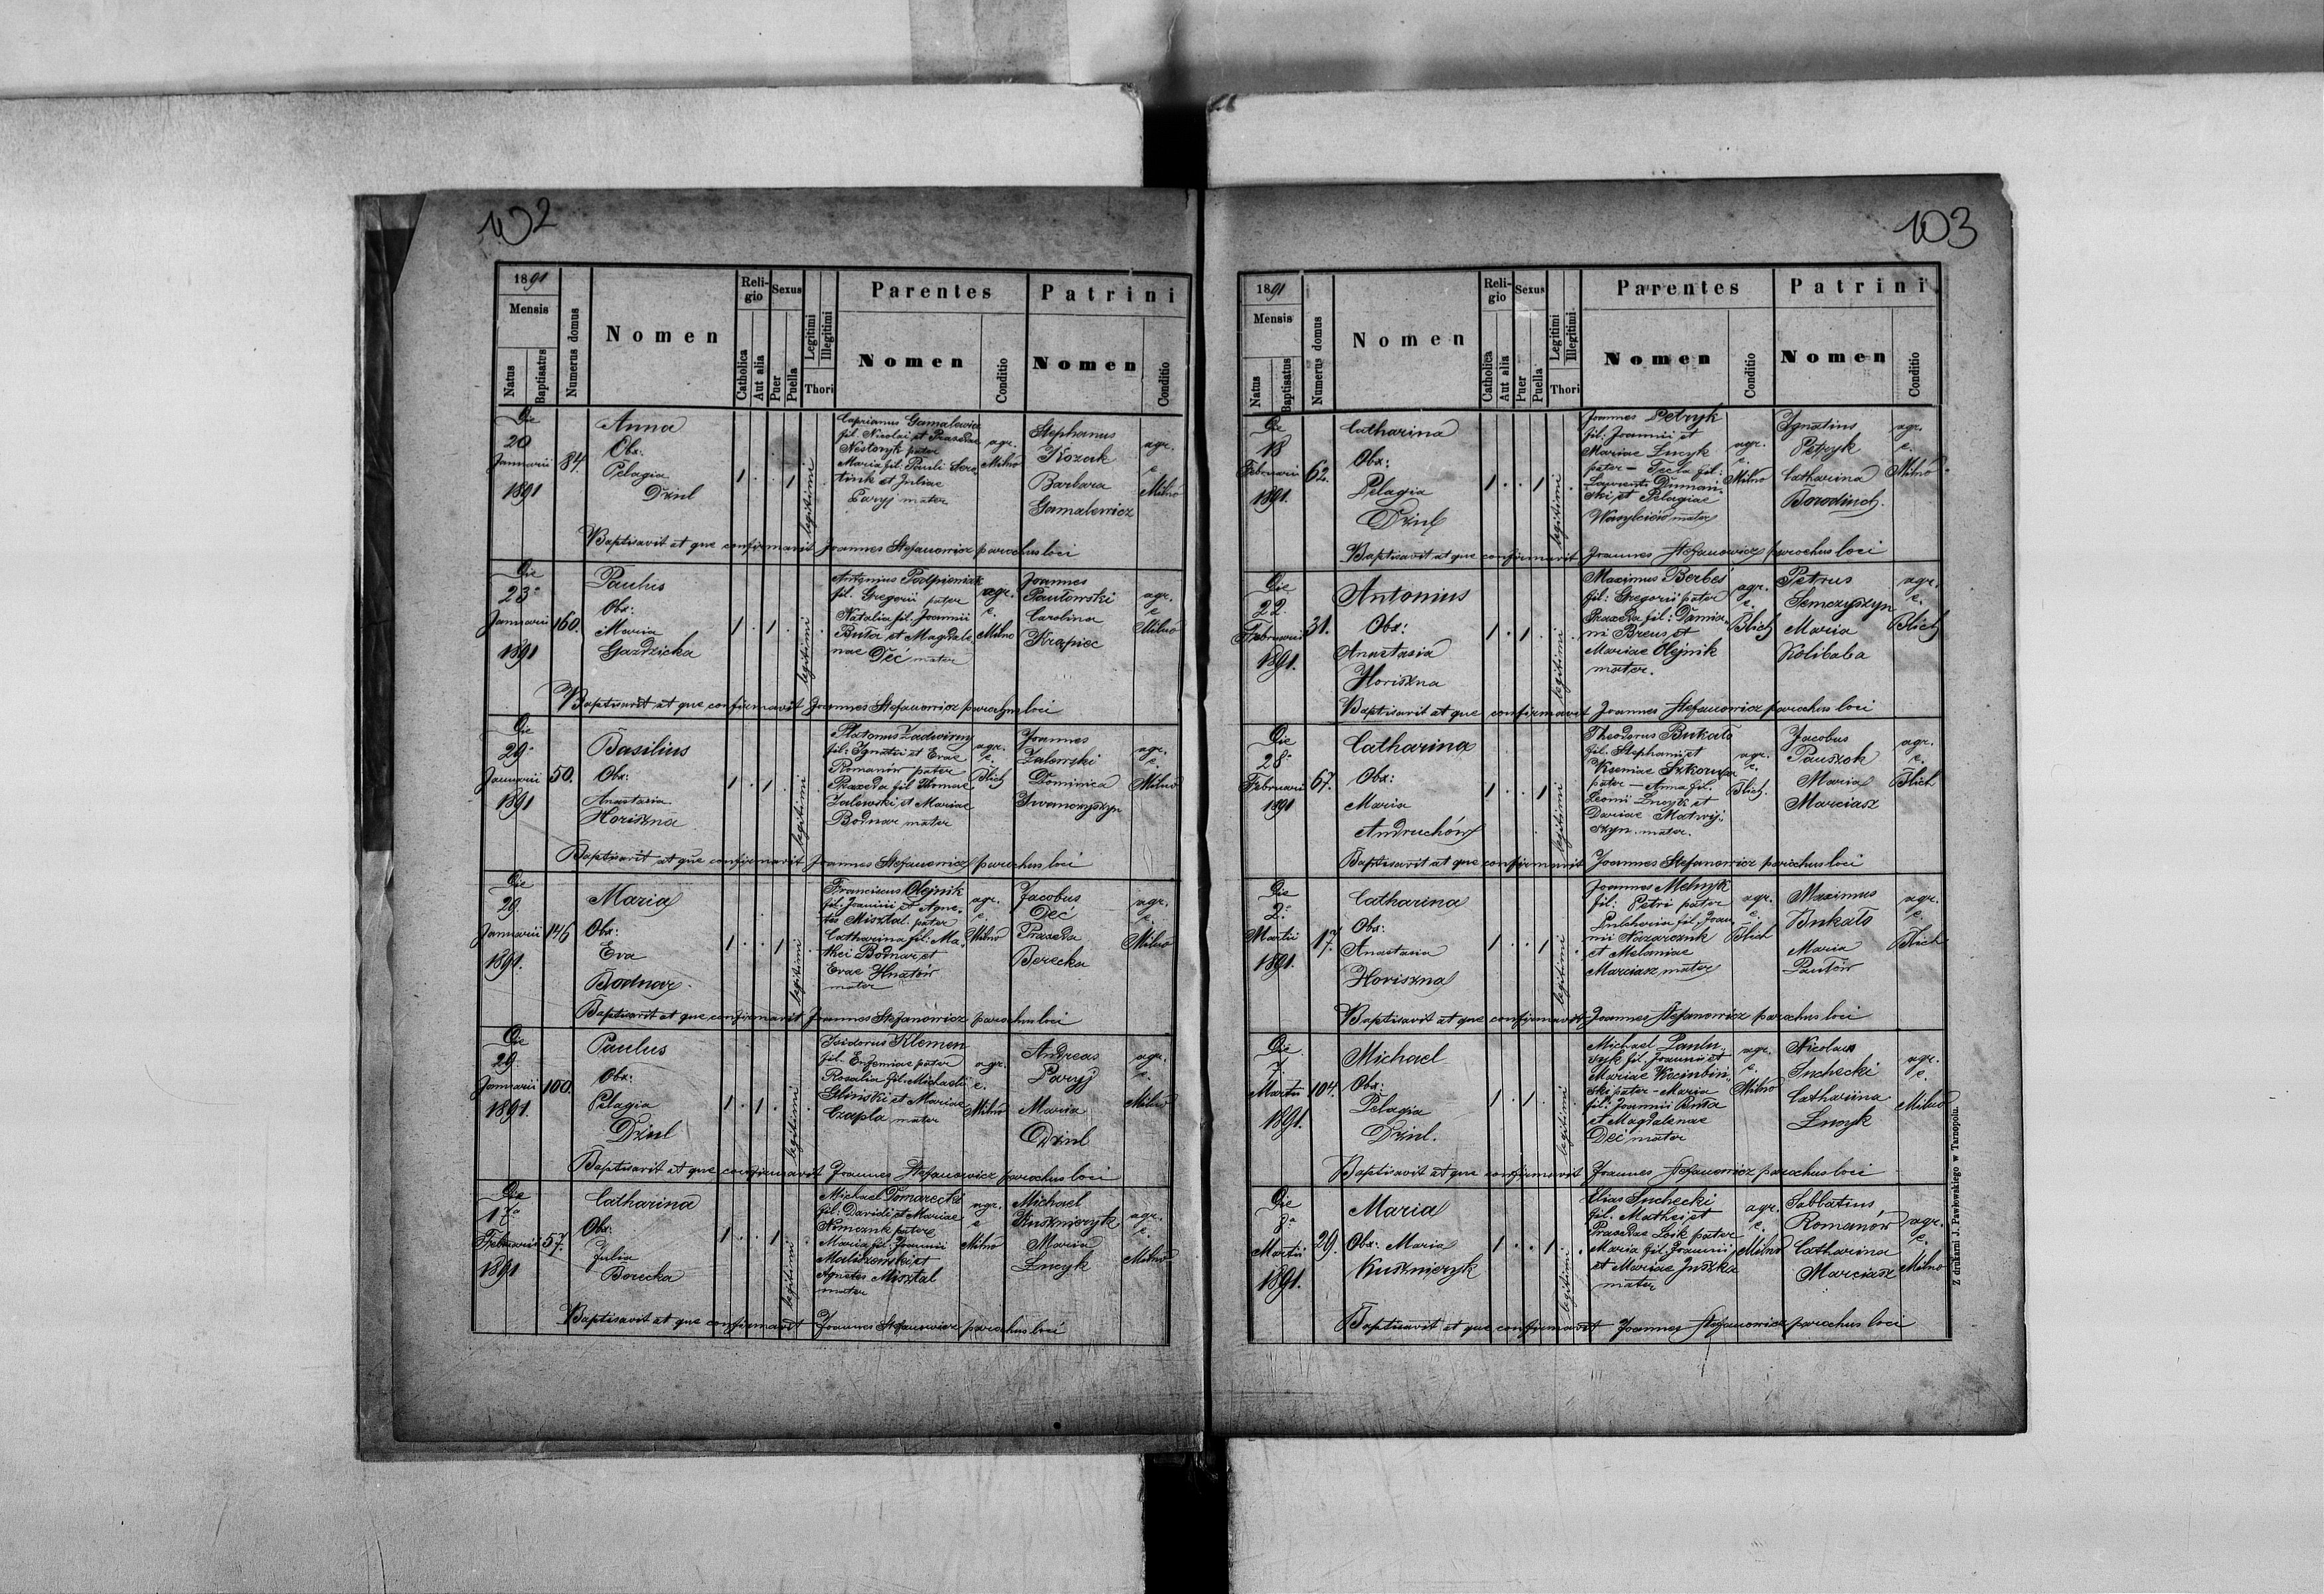 102
1891
Mensis
Natus
Baptisatus
Numerus domus
Nomen
Religio
Catholica
Aut alia
Sexus
Puer
Puella
Legitimi
Illegitimi
Thori
Parentes
Nomen
Conditio
Patrini
Nomen
Conditio
Die
20
Januarii
1891
84.
Anna
Obx:
Pelagia
Dziul
1 . . 1
legitimi
Caprianus Gamalewicz
fil. Nicolai et Praxedae
Nestoryk pater
Maria fil. Pauli
et Juliae
Paryj mater
agr.
Milno
Stephanus
Kozak
Barbara
Gamalewicz
agr.
e
Milno
Baptisavit at que confirmavit Joannes Stefanowicz parochus loci
Die
23
Januarii
1891
160.
Paulus
Obx:
Maria
Gazdzicka
1 . 1 .
legitimi
Antonius Podpieniak
fil. Gregorii pater
Natalia fil. Joannii
Buła et Magdale
nae Deć mater
agr.
e.
Milno
Joannes
Pawłowski
Carolina
Krapiec
agr.
e
Milno
Baptisavit at que confirmavit Joannes Stefanowicz parochus loci
Die
29
Januarii
1891
50.
Basilius
Obx:
Anastasia
Horiszna
1 . 1 .
legitimi
Platonus Zadwirny
fil. Ignatii et Evae
Romanów pater
Praxeda fil Thomae
Zalewski et Mariae
Bodnar mater
agr.
e.
Blich
Joannes
Zalewski
Dominica
Iwanczyszyn
agr.
e.
Milno
Baptisavit at que confirmavit Joannes Stefanowicz parochus loci
Die
29.
Januarii
1891.
146
Maria
Obx:
Eva
Bodnar
1 . . 1
legitimi
Franciscus Olejnik
fil. Joannii et Agne-
tes Misztal pater
Catharina fil: Ma-
thei Bodnar et
Evae Hnatów
mater
agr.
e.
Milno
Jacobus
Deć
Praxeda
Berecka
agr.
e.
Milno
Baptisavit at que confirmavit Joannes Stefanowicz parochus loci
Die
29.
Januarii
1891.
100.
Paulus
Obx:
Pelagia
Dziul
1 . 1 .
legitimi
Isidorus Klemen
fil. Eufemiae pater
Rosalia fil. Michaelis
Gliński et Mariae
Czapla mater
agr.
e.
Milno
Andreas
Paryj
Maria
Dziul
agr.
e.
Milno
Baptisavit at que confirmavit Joannes Stefanowicz parochus loci
Die
17
Februarii
1891
57.
Catharina
Obx.
Julia
Berecka
1 . . 1
legitimi
Michael Tomarecki
fil. Davidi et Mariae
Nemczuk pater
Maria fil. Joannii
et
Agnetes Misztal
mater
agr.
e
Milno
Michael
Kuszniryk
Maria
Łucyk
agr.
e.
Milno
Baptisavit at que confirmavit Joannes Stefanowicz parochus loci
103
1891
Mensis
Natus
Baptisatus
Numerus domus
Nomen
Religio
Catholica
Aut alia
Sexus
Puer
Puella
Legitimi
Illegitimi
Thori
Parentes
Nomen
Conditio
Patrini
Nomen
Conditio
Die
18
Februarii
1891.
62.
Catharina
Obx:
Pelagia
Dziul
1 . . 1
legitimi
Joannes Petryk
fil: Joannii et
Mariae Łucyk
pater - Tecla fil:
Laurenti Dumań-
ski et Pelagiae
Wasylciów mater
agr.
e.
Milno
Ignatius
Petryk
Catharina
Borodinch.
agr.
e.
Milno
Baptisavit at que confirmavit Joannes Stefanowicz parochus loci
Die
22.
Februarii
1891.
31.
Antonius
Obx:
Anastasia
Horiszna
1 . 1 .
legitimi
Maximus Berbeś
fil: Gregorii pater
Praxeda fil: Damia-
ni Breus et
Mariae Olejnik
mater.
agr.
e.
Blich
Petrus
Semczyszyn
Maria
Kolibaba
agr.
e.
Blich
Baptisavit at que confirmavit Joannes Stefanowicz parochus loci
Die
28
Februarii
1891
67.
Catharina
Obx:
Maria
Andruchów
1 . . 1
legitimi
Theodorus Bukało
fil. Stephani et
Kseniae
pater - Anna fil.
Leonii Łucyk et
Dariae Matwij-
szyn mater.
agr.
e.
Blich.
Jacobus
Pauszok
Maria
Marciasz
agr.
e.
Blich
Baptisavit at que confirmavit Joannes Stefanowicz parochus loci
Die
2.
Martii
1891.
17.
Catharina
Obx:
Anastasia
Horiszna
1 . . 1
legitimi
Joannes Melnyk
fil: Petri pater
Pulcheria fil. Joan-
nii Nazarczuk
et Melaniae
Marciasz mater
agr.
e.
Blich
Maximus
Bukało
Maria
Pawłów
agr.
e.
Blich
Baptisavit at que confirmavit Joannes Stefanowicz parochus loci
Die
7.
Martii
1891.
104.
Michael
Obx:
Pelagia
Dziul.
1 . 1 .
legitimi
Michael
fil. Joannii et
Mariae Kocinbiń-
ski pater - Maria
fil: Joannii Buła
et Magdalenae
Deć mater
agr.
e.
Milno
Nicolaus
Suchecki
Catharina
Łucyk
agr.
e.
Milno
Baptisavit at que confirmavit Joannes Stefanowicz parochus loci
Die
8
Martii
1891.
29.
Maria
Obx: Maria
Kuszniryk
1 . . 1
legitimi
Elias Suchecki
fil. Mathei et
Praxedae Łoik pater
Maria fil. Joannii
et Mariae Juszka
mater
agr.
e.
Milno
Sabbatius
Romanów
Catharina
Marciasz
agr.
e.
Milno
Baptisavit at que confirmavit Joannes Stefanowicz parochus loci
Z drukarni J. Pawłowskiego w Tarnopolu.